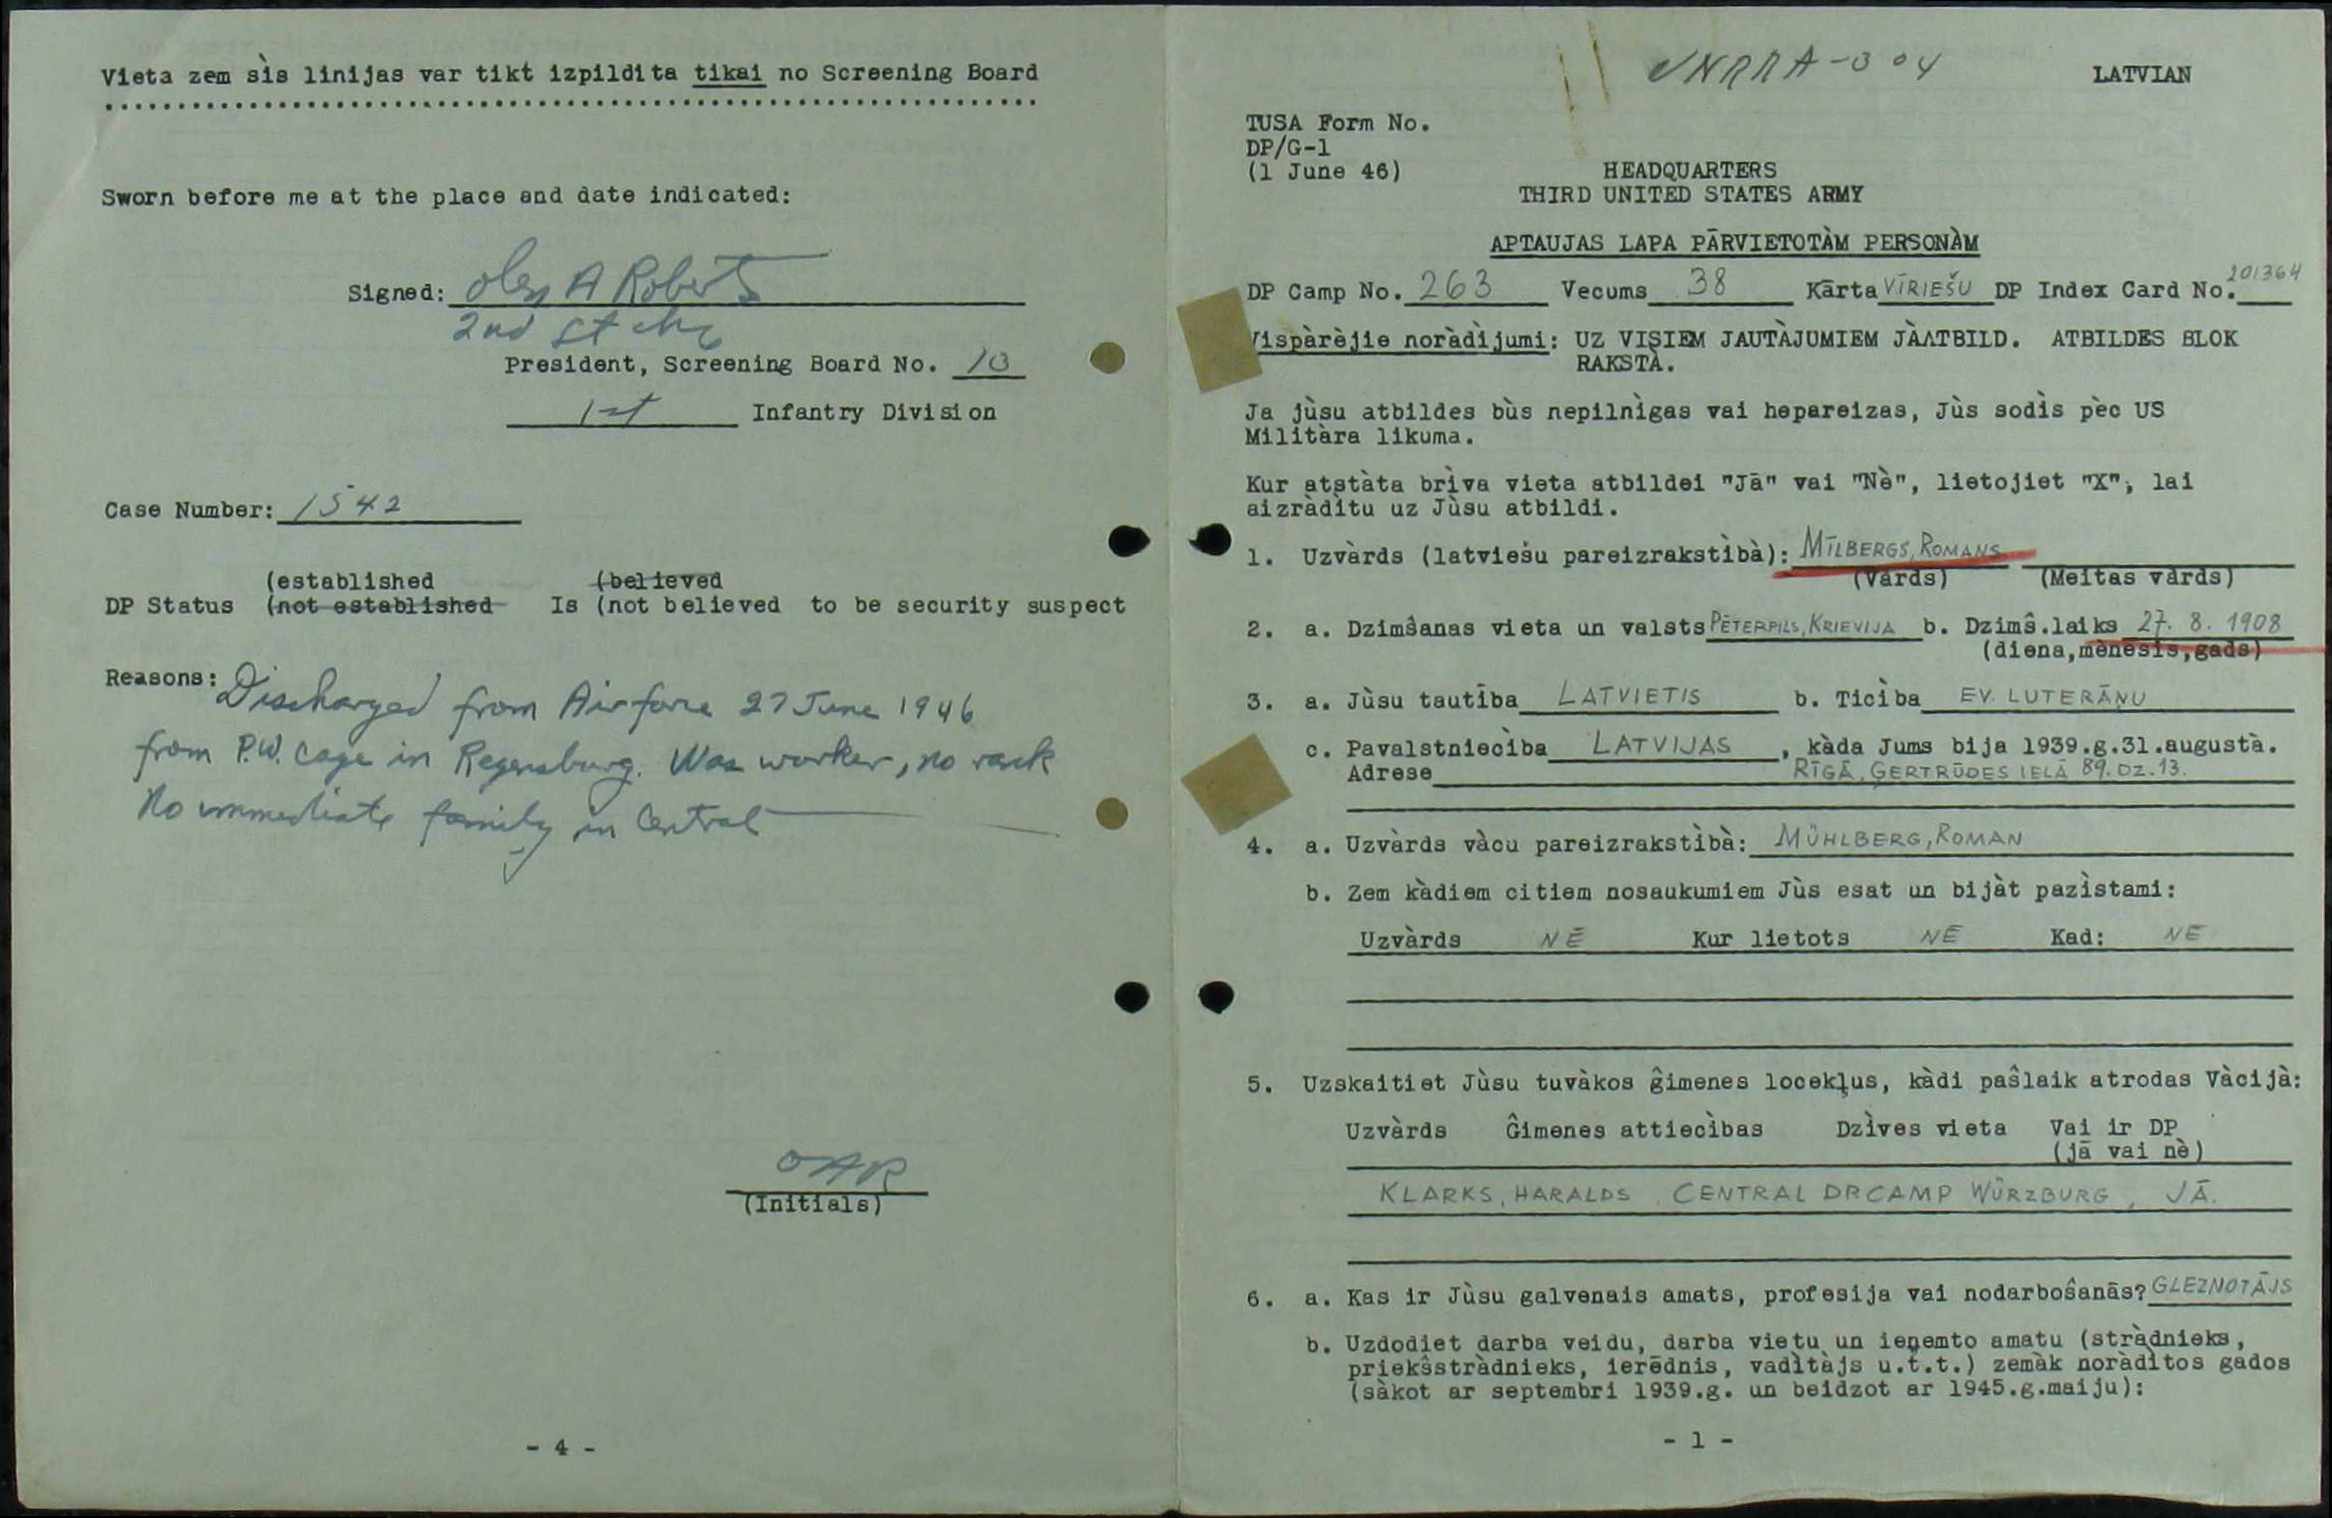 Vieta zem sìs linijas var tikt izpildita tikai no Screening Board
Sworn before me at the place and date indicated:
Signed: A Roberts
2nd Lt
President, Screening Board No. 10
1st Infantry Division
Case Number: 1542
(established (believed
DP Status (not established Is (not believed to be security suspect
Reasons: Discharged from Airforce 27 June 1946
from P.W. cage in Regensburg. Was worker, no rank
No immediate family in Central
OAR
(Initials)
- 4 -
UNRRA-304
LATVIAN
TUSA Form No.
DP/G-1
(1 June 46)
HEADQUARTERS
THIRD UNITED STATES ARMY
APTAUJAS LAPA PĀRVIETOTÀM PERSONÀM
201364
DP Camp No. 263 Vecums 38 Kārta VĪRIEŠU DP Index Card No.
Vispàrèjie noràdìjumi: UZ VISIEM JAUTÀJUMIEM JÀATBILD. ATBILDES BLOK
RAKSTÀ.
Ja jùsu atbildes bùs nepilnìgas vai hepareizas, Jùs sodìs pèc US
Militàra likuma.
Kur atstàta brìva vieta atbildei "Jā" vai "Nè", lietojiet "X", lai
aizràdìtu uz Jùsu atbildi.
1. Uzvàrds (latviešu pareizrakstìbà): MĪLBERGS, ROMANS
(Vārds) (Meitas vārds)
2. a. Dzimŝanas vieta un valsts PĒTERPILS, KRIEVIJA b. Dzimŝ.laiks 27. 8. 1908
(diena,mènesis,gads)
3. a. Jùsu tautība LATVIETIS b. Ticìba EV. LUTERĀŅU
c. Pavalstniecìba LATVIJAS , kàda Jums bija 1939.g.31.augustà.
Adrese RĪGĀ, ĢERTRŪDES IELĀ 89. DZ. 13.
4. a. Uzvàrds vàcu pareizrakstìbà: MÜHLBERG, ROMAN
b. Zem kàdiem citiem nosaukumiem Jùs esat un bijàt pazìstami:
Uzvàrds NĒ Kur lietots NĒ Kad: NĒ
5. Uzskaitiet Jùsu tuvàkos ĝimenes locekļus, kàdi paŝlaik atrodas Vàcijà:
Uzvàrds Ĝimenes attiecìbas Dzìves vieta Vai ir DP
(jā vai nè)
KLARKS, HARALDS, CENTRAL DP CAMP WÜRZBURG, JĀ.
6. a. Kas ir Jùsu galvenais amats, profesija vai nodarboŝanās? GLEZNOTĀJS
b. Uzdodiet darba veidu, darba vietu un ieņemto amatu (stràdnieks,
priekŝstràdnieks, ierēdnis, vadìtàjs u.t.t.) zemàk noràdìtos gados
(sàkot ar septembri 1939.g. un beidzot ar 1945.g.maiju):
- 1 -